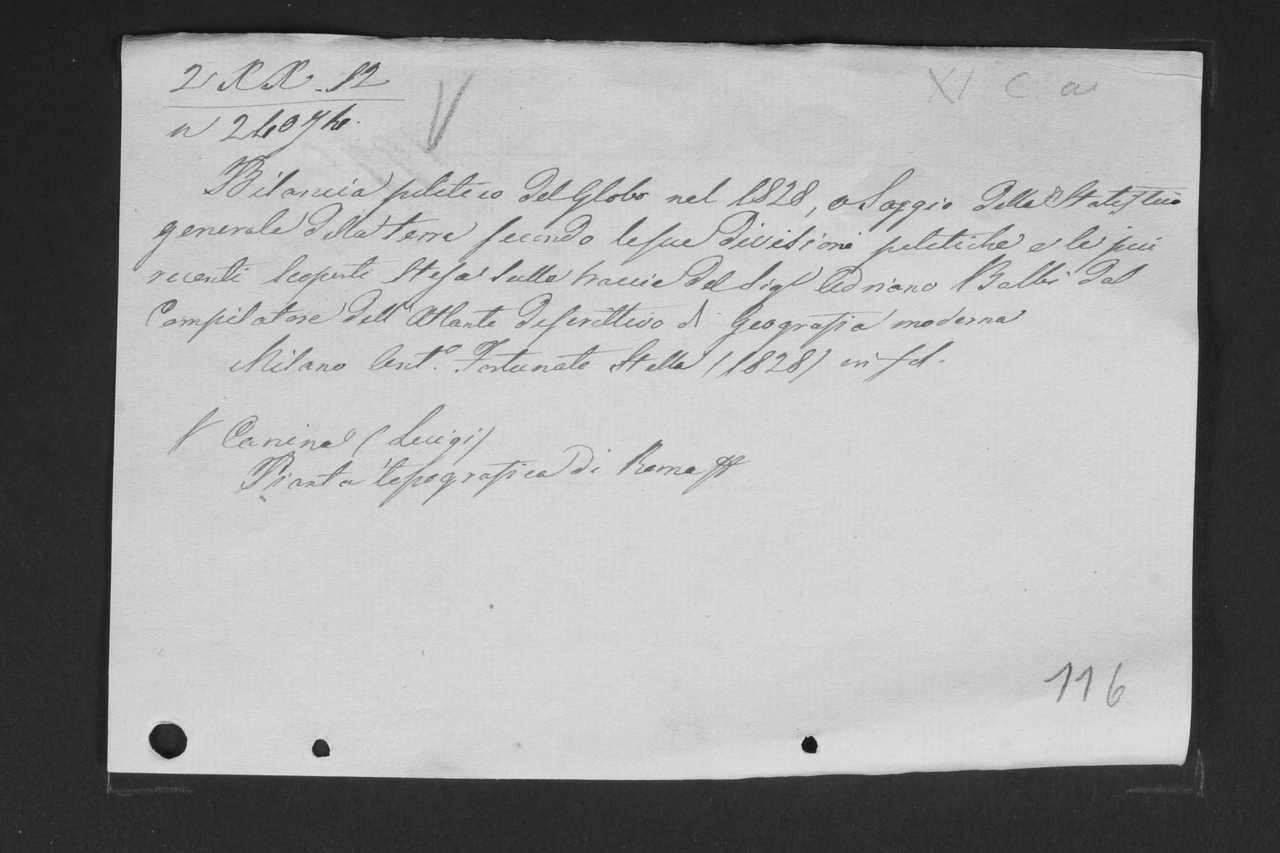 2 XX. 12
XI C a
n 24074.
V
Bilancia politico del Globo nel 1828, o Saggio della Statistica
generale della terra secondo le sue divisioni politiche e le piu
recenti scoperte stesa sulle traccie del Sigr Adriano Balbi dal
Compilatore dell' Atlante descrittivo di Geografia moderna
Milano Ant.o Fortunato Stella (1828) in fol.
V Canina (Luigi)
Pianta topografica di Roma
116